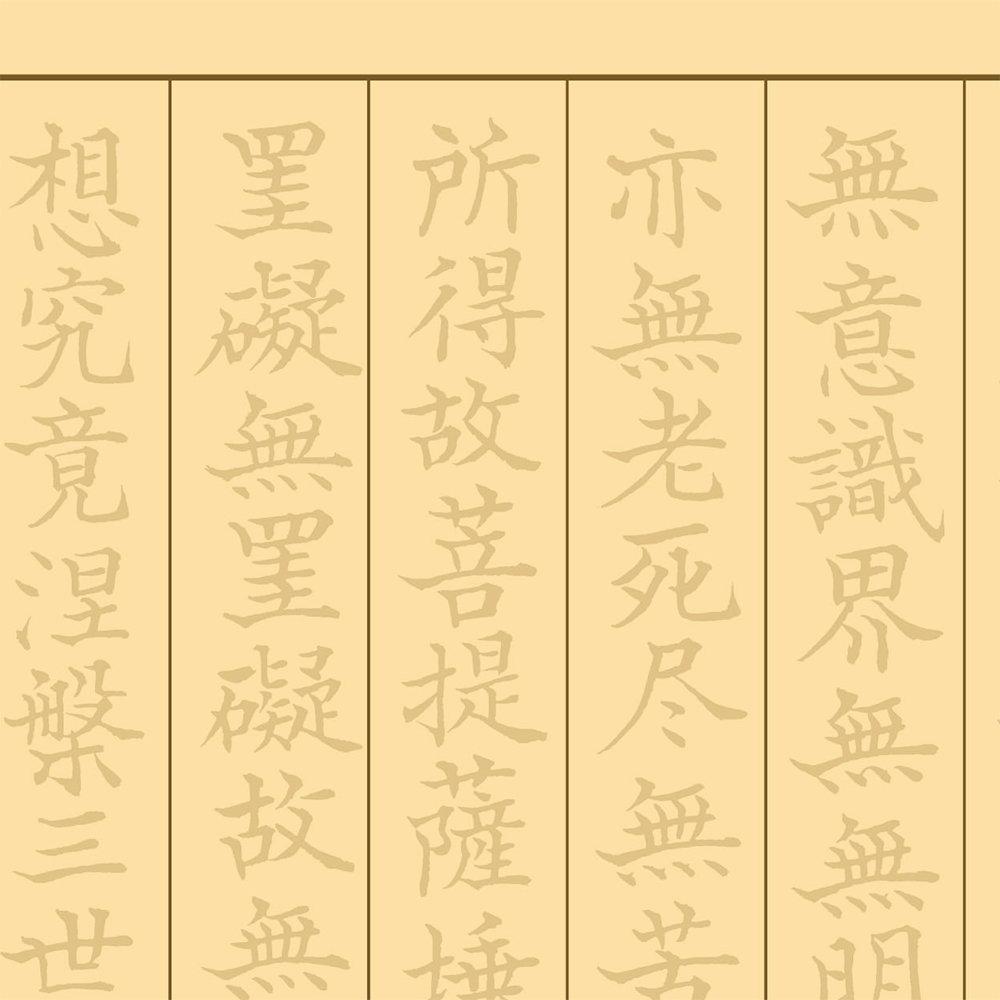 無意識界無無明
亦無老死尽無苦
所得故菩提薩埵
罣礙無罣礙故無
想究竟涅槃三世